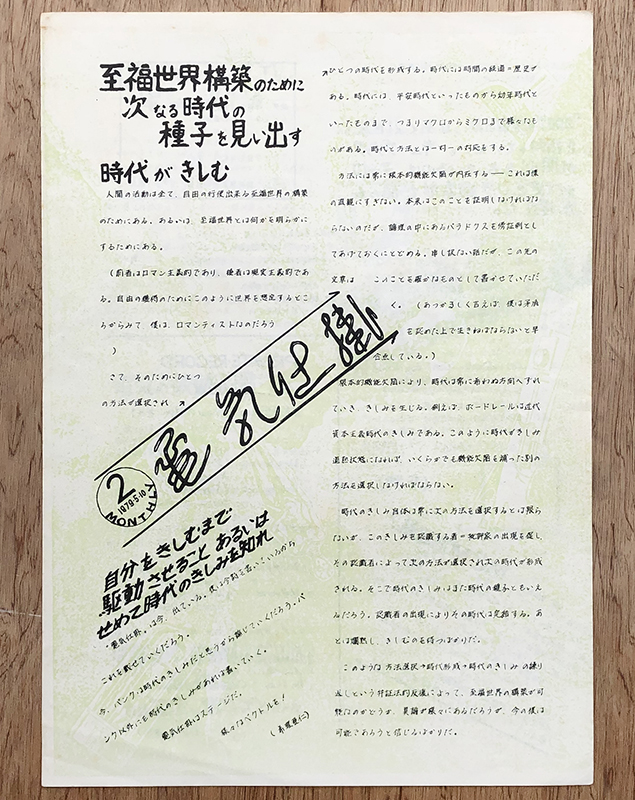 至福世界構築のために
次なる時代の
種子を見い出す
時代がきしむ
人間の活動は全て、自由の行使出来る至福世界の構築
のためにある。あるいは、至福世界とは何かを明らかに
するためにある。
(前者はロマン主義的であり、後者は現実主義的であ
る。自由の獲得のためにこのように世界を想定するとこ
ろからみて、僕は、ロマンティストなのだろう
)
さて、そのためにひとつ
の方法が選択され
ひとつの時代を形成する。時代には時間の経過=歴史が
ある。時代には、平安時代といったものから幼年時代と
いったものまで、つまりマクロからミクロまで様々なも
のがある。時代と方法とは一対一の対応をする。
方法には常に根本的機能欠陥が内在する——これは僕
の直観にすぎない。本来はこのことを証明しなければな
らないのだが、論理の中にあるパラドクスを傍証例とし
てあげておくにとどめる。申し訳ない話だが、この先の
文章は このことを確かなものとして書かせていただ
く。(あつかましく言えば、僕は矛盾
を認めた上で生きねばならないと早
合点している。)
根本的機能欠陥により、時代は常に思わぬ方向へずれ
ていき、きしみを生じる。例えば、ボードレールは近代
資本主義時代のきしみである。このように時代がきしみ
状態になれば、いくらかでも機能欠陥を補った別の
方法を選択しなければならない。
時代のきしみ自体は常に次の方法を選択するとは限ら
ないが、このきしみを認識する者=批評家の出現を促し、
その認識者によって次の方法が選択され次の時代が形成
される。そこで時代のきしみはまた時代の継子ともいえ
るだろう。認識者の出現によりその時代は完結する。あ
とは爛熟し、きしむのを待つばかりだ。
このような方法選択→時代形成→時代のきしみの繰り
返しという弁証法的反復によって、至福世界の構築が可
能なのかどうか、異論が様々にあるだろうが、今の僕は
可能であろうと信じるばかりだ。
電気仕掛
2
1979・5・10
MONTHLY
自分をきしむまで
駆動させること あるいは
せめて時代のきしみを知れ
"電気仕掛"は今、出ている。僕は今
これを載せていくだろう。
今、パンクは時代のきしみだと思うから
ンク以外にも時代のきしみがあれば書いていく。
電気仕掛はステージだ。
様々なベクトルを!